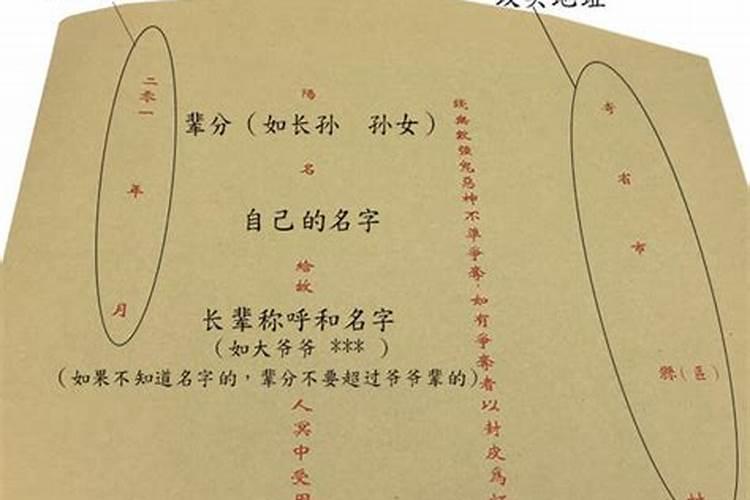 地址
寄 省 市 縣(區)
錢無數強鬼惡神不準爭奪,如有爭奪者以封皮爲
陽
辈分（如长孙 孙女）
名
自己的名字
給故
长辈称呼和名字
（如大爷爷 *** ）
（如果不知道名字的，辈分不要超过爷爷辈的）
人冥中受用
二零一 年 月